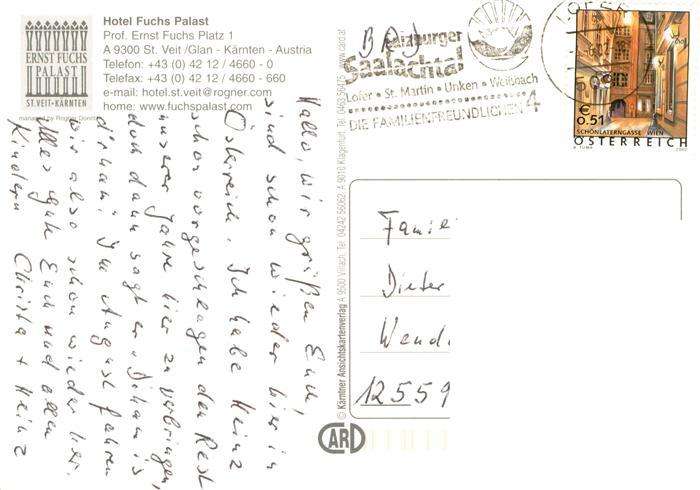 ERNST FUCHS
PALAST
ST. VEIT-KÄRNTEN
Hotel Fuchs Palast
Prof. Ernst Fuchs Platz 1
A 9300 St. Veit /Glan - Kärnten - Austria
Telefon: +43 (0) 42 12 / 4660 - 0
Telefax: +43 (0) 42 12 / 4660 - 660
e-mail: hotel.st.veit@rogner.com
home: www.fuchspalast.com
managed by Rogner
Hallo, wir grüßen Euch,
sind schon wieder hier in
Österreich. Ich habe Heinz
schon vorgeschlagen den Rest
unserer Jahre hier zu verbringen,
doch dann sagt er „Daham is
daham". Im August fahren
wir also schon wieder her.
Alles gute Euch und allen
Kindern Christa + Heinz
© Kärntner Ansichtskartenverlag A 9500 Villach, Tel. 04242-56062, A 9010 Klagenfurt, Tel.
CARD
BRD
Salzburger
Saalachtal
Lofer • St. Martin • Unken • Weißbach
DIE FAMILIENFREUNDLICHEN 4
LOFER
509
€ 0.51
SCHÖNLATERNGASSE WIEN
ÖSTERREICH
2002
Famie
Dieter
Wend
12559